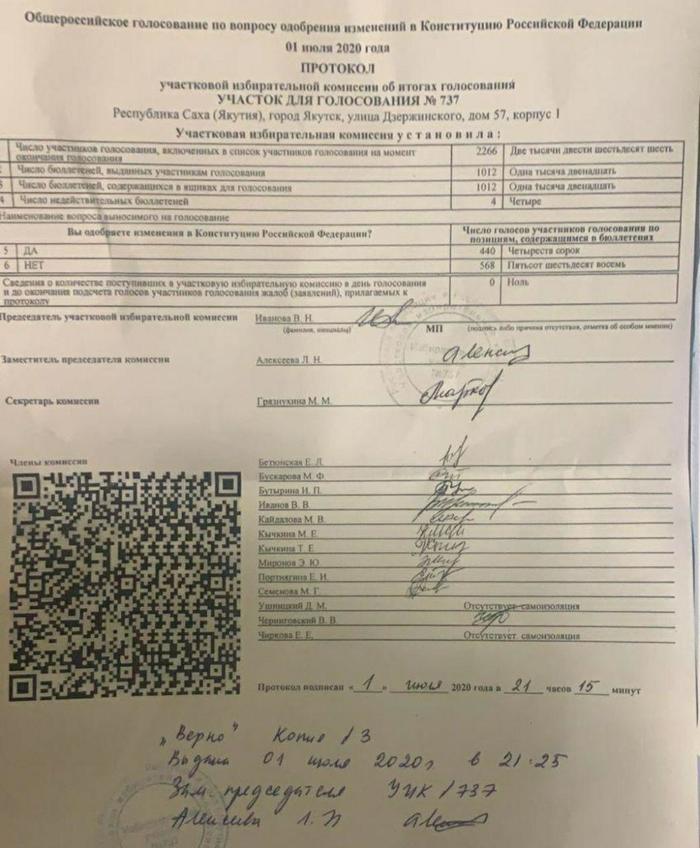 Общероссийское голосование по вопросу одобрения изменений в Конституцию Российской Федерации
01 июля 2020 года
ПРОТОКОЛ
участковой избирательной комиссии об итогах голосования
УЧАСТОК ДЛЯ ГОЛОСОВАНИЯ № 737
Республика Саха (Якутия), город Якутск, улица Дзержинского, дом 57, корпус 1
Участковая избирательная комиссия у с т а н о в и л а :
Число участников голосования, включенных в список участников голосования на момент окончания голосования 2266 Две тысячи двести шестьдесят шесть
Число бюллетеней, выданных участникам голосования 1012 Одна тысяча двенадцать
3 Число бюллетеней, содержащихся в ящиках для голосования 1012 Одна тысяча двенадцать
4 Число недействительных бюллетеней 4 Четыре
Наименование вопроса выносимого на голосование
Вы одобряете изменения в Конституцию Российской Федерации? Число голосов участников голосования по позициям, содержащимся в бюллетенях
5 ДА 440 Четыреста сорок
6 НЕТ 568 Пятьсот шестьдесят восемь
Сведения о количестве поступивших в участковую избирательную комиссию в день голосования 0 Ноль
и до окончания подсчета голосов участников голосования жалоб (заявлений), прилагаемых к
протоколу
Председатель участковой избирательной комиссии Иванова В. Н.
(фамилия, инициалы) МП (подпись либо причина отсутствия, отметка об особом мнении)
Заместитель председателя комиссии Алексеева Л. Н.
Секретарь комиссии Грязнухина М. М.
Члены комиссии
Бетюнская Е. Л.
Бускарова М. Ф.
Бутырина И. П.
Иванов В. В.
Кайдалова М. В.
Кычкина М. Е.
Кычкина Т. Е
Миронов Э. Ю.
Портнягина Е. И.
Семенова М. Г.
Ушницкий Д. М. Отсутствует самоизоляция
Черниговский В. В.
Чиркова Е. Е. Отсутствует. самоизоляция
Протокол подписан « 1 » июля 2020 года в 21 часов 15 минут
„Верно" Копия 13
Выдана 01 июля 2020г в 21-25
Зам председателя УИК 1737
Алексеева Л.Н